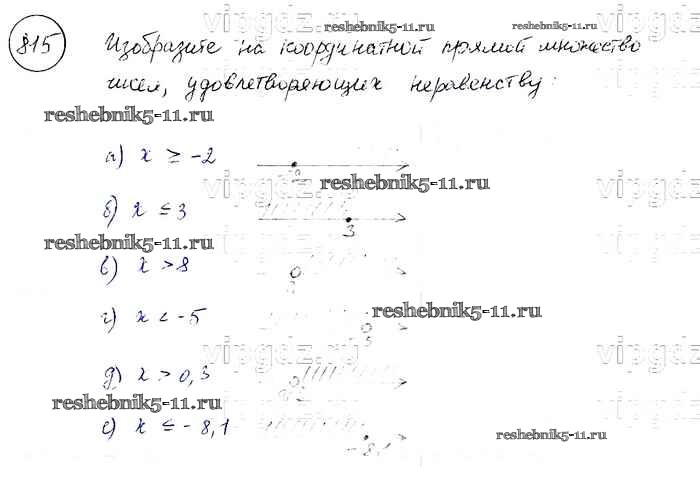 815 Изобразите на координатной прямой множество
reshebnik5-11.ru
reshebnik5-11.ru
vipgdz.ru
чисел, удовлетворяющих неравенству:
reshebnik5-11.ru
а) x ≥ -2
vipgdz.ru
reshebnik5-11.ru
б) x ≤ 3
3
reshebnik5-11.ru
в) x > 8
г) x < -5
reshebnik5-11.ru
5
vipgdz.ru
vipgdz.ru
д) x > 0,3
reshebnik5-11.ru
е) x ≤ -8,1
-8,1
reshebnik5-11.ru